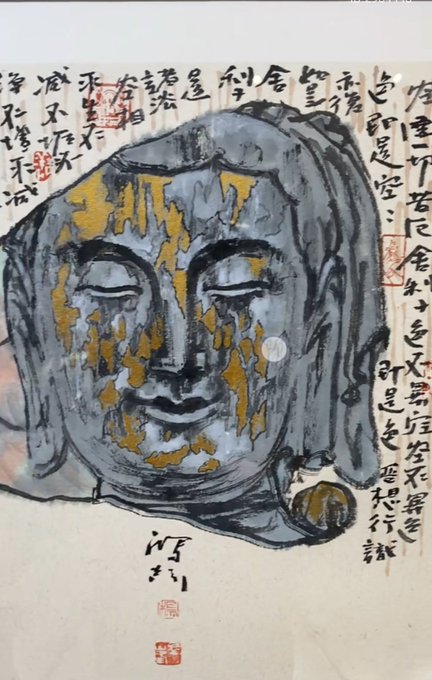 空度一切苦厄舍利子色不異空空不異色
色即是空〻
即是色受想行識
亦復
如是
舍
利子
是
諸法
空相
不生不
滅不垢不
淨不增不減